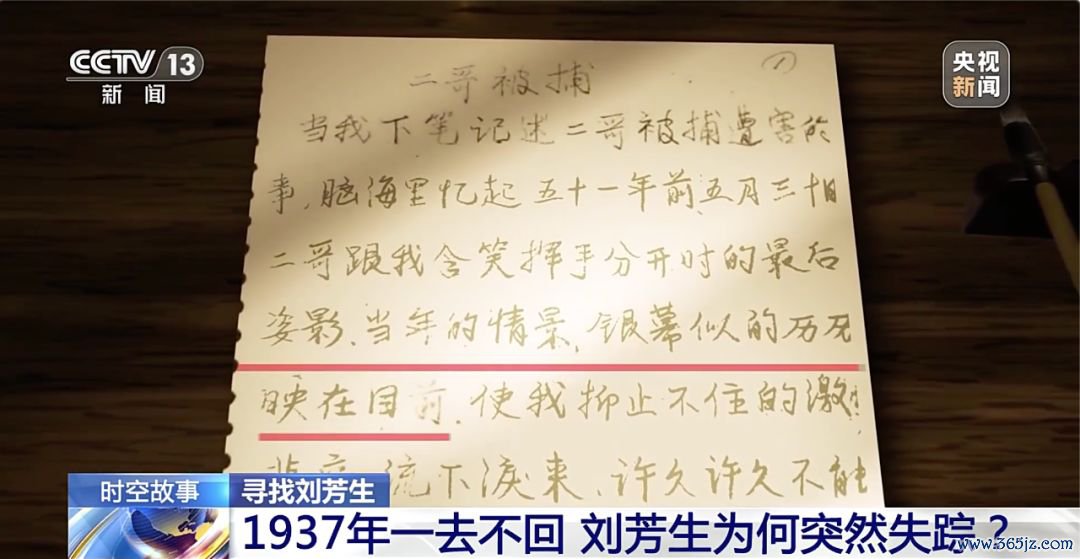 CCTV 13
新闻
央视
新闻
二哥被捕 (1)
当我下笔记述二哥被捕遭害的
事,脑海里忆起五十一年前五月三十日
二哥跟我含笑挥手分开时的最后
姿影、当年的情景,银幕似的历历
映在目前,使我抑止不住的激
流下淚来、许久许久不能
时空故事 寻找刘芳生
1937年一去不回 刘芳生为何突然失踪?
www.365jz.com